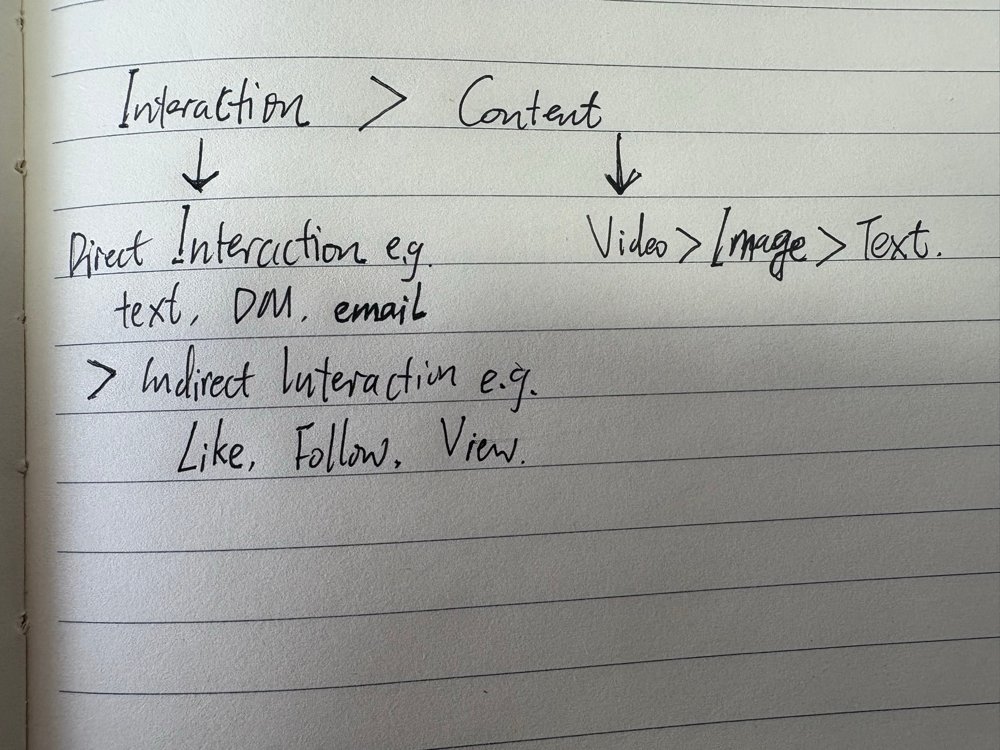 Interaction > Content
↓ ↓
Direct Interaction e.g. Video > Image > Text.
text, DM, email
> Indirect Interaction e.g.
Like, Follow, View.